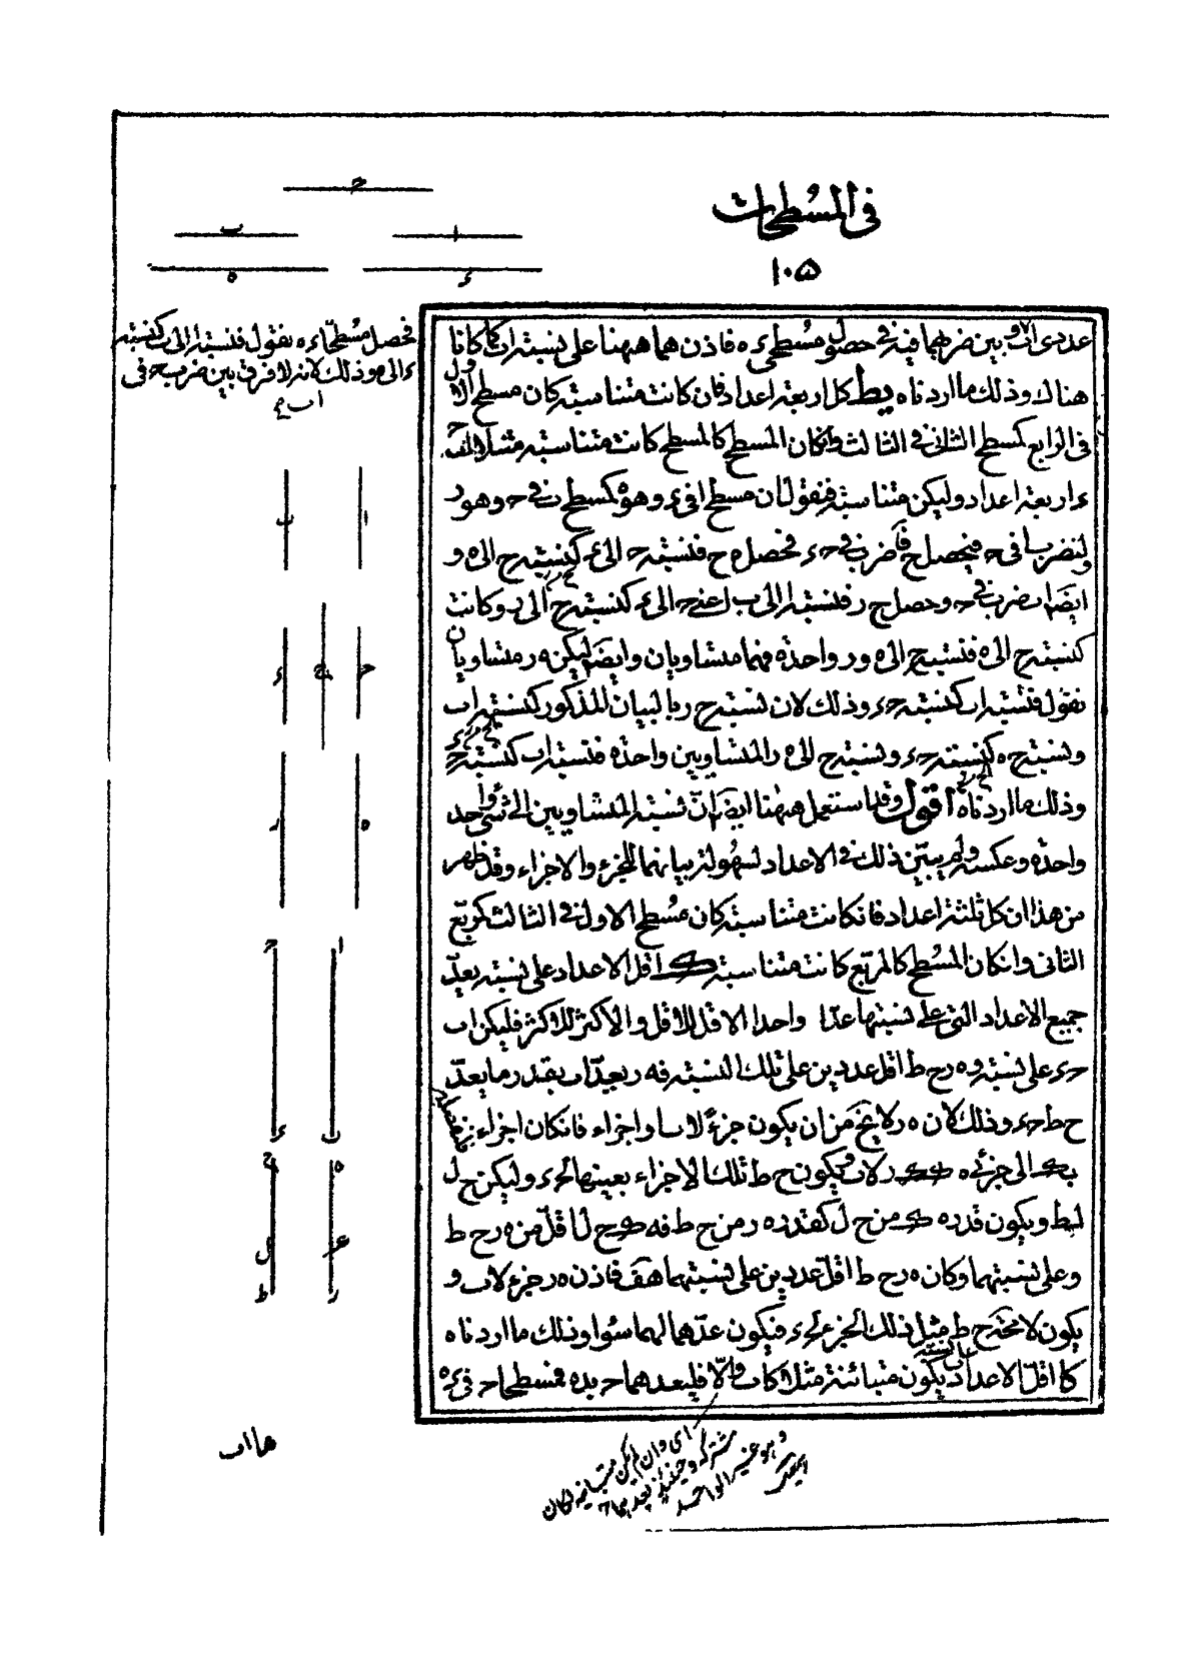 في المسطحات
١٠٥
ح
ا ب
ء ه
فحصل مسطحا ء ه نقول فنسبة ا الى ب كنسبة
ء الى ه وذلك لانه لا فرق بين ضرب ح في
ا ب
عددى ا ب وبين ضربهما فيه في حصول مسطحى ء ه فاذن هما ههنا على نسبة ا ب كما كانا
هناك وذلك ما اردناه يط كل اربعة اعداد فان كانت متناسبة كان مسطح الاول
في الرابع كمسطح الثانى في الثالث وان كان المسطح كالمسطح كانت متناسبة مثلا ا ب ح
ء اربعة اعداد وليكن متناسبة فنقول ان مسطح ا في ء وهو ه كمسطح ب في ح وهو ر
ولنضرب ا في ح فيحصل ح فا ضرب في ح ء فحصل ه ح فنسبة ح الى ء كنسبة ح الى ه و
ايضا ا ب ضرب في ح وحصل ح ر فنسبة ا الى ب اعنى ح الى ء كنسبة ح الى ر وكانت
كنسبة ح الى ه فنسبة ح الى ه و ر واحدة فهما متساويان وايضا ليكن ه ر متساويان
نقول فنسبة ا ب كنسبة ح ء وذلك لان نسبة ح ر بالبيان المذكور كنسبة ا ب
ونسبة ح ه كنسبة ح ء ونسبة ح الى ه ر المتساويين واحدة فنسبة ا ب كنسبة ح ء
وذلك ما اردناه اقول وقد استعمل ههنا ايضا ان نسبة المتساويين الى شئ واحد
واحدة وعكسه ولم يبين ذلك في الاعداد لسهولة بيانهما للجزء والاجزاء وقد ظهر
من هذا ان كل ثلثة اعداد فان كانت متناسبة كان مسطح الاول في الثالث كمربع
الثانى وان كان المسطح كالمربع كانت متناسبة ك اقل الاعداد على نسبة يعد
جميع الاعداد التى على نسبتها عدا واحدا الاقل للاقل والاكثر للاكثر فليكن ا ب
ح ء على نسبة و ه ر ح ط اقل عددين على تلك النسبة فه ر يعد ا ب بقدر ما يعد
ح ط ح ء وذلك لان ه ر لا يخ من ان يكون جزءً لا ب او اجزاء فان كان اجزاء
بك الى جزئى ه ك ك ر لا ب ويكون ح ط تلك الاجزاء بعينها لح ء وليكن ح ل
ل ط ويكون قدر ه ك من ح ل كقدر ه ر من ح ط فه ك ح ل اقل من ه ر ح ط
وعلى نسبتهما وكان ه ر ح ط اقل عددين على نسبتهما هف فاذن ه ر جزء لا ب و
يكون لا محة ح ط مثل ذلك الجزء لح ء فيكون عدهما لهما سواء وذلك ما اردناه
كا اقل الاعداد على نسبة يكون متبائنة مثلا كا ب والا فليعدهما ح ب ء ه فمسطحا ح في ء ه
ا ب
ح ح ء
ه ر
ا ح
ب ء
ه ح
ك ل
ر ط
اى وان لم يكن متباينة لكان
مشتركة وحينئذ يعدهما
وهو غير الواحد
هما ا ب